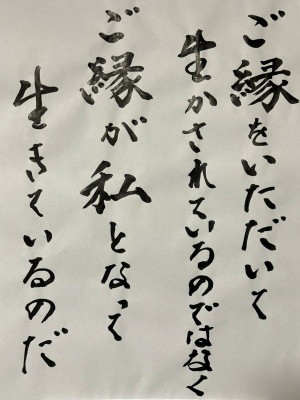 ご縁をいただいて
生かされているのではなく
ご縁が私となって
生きているのだ